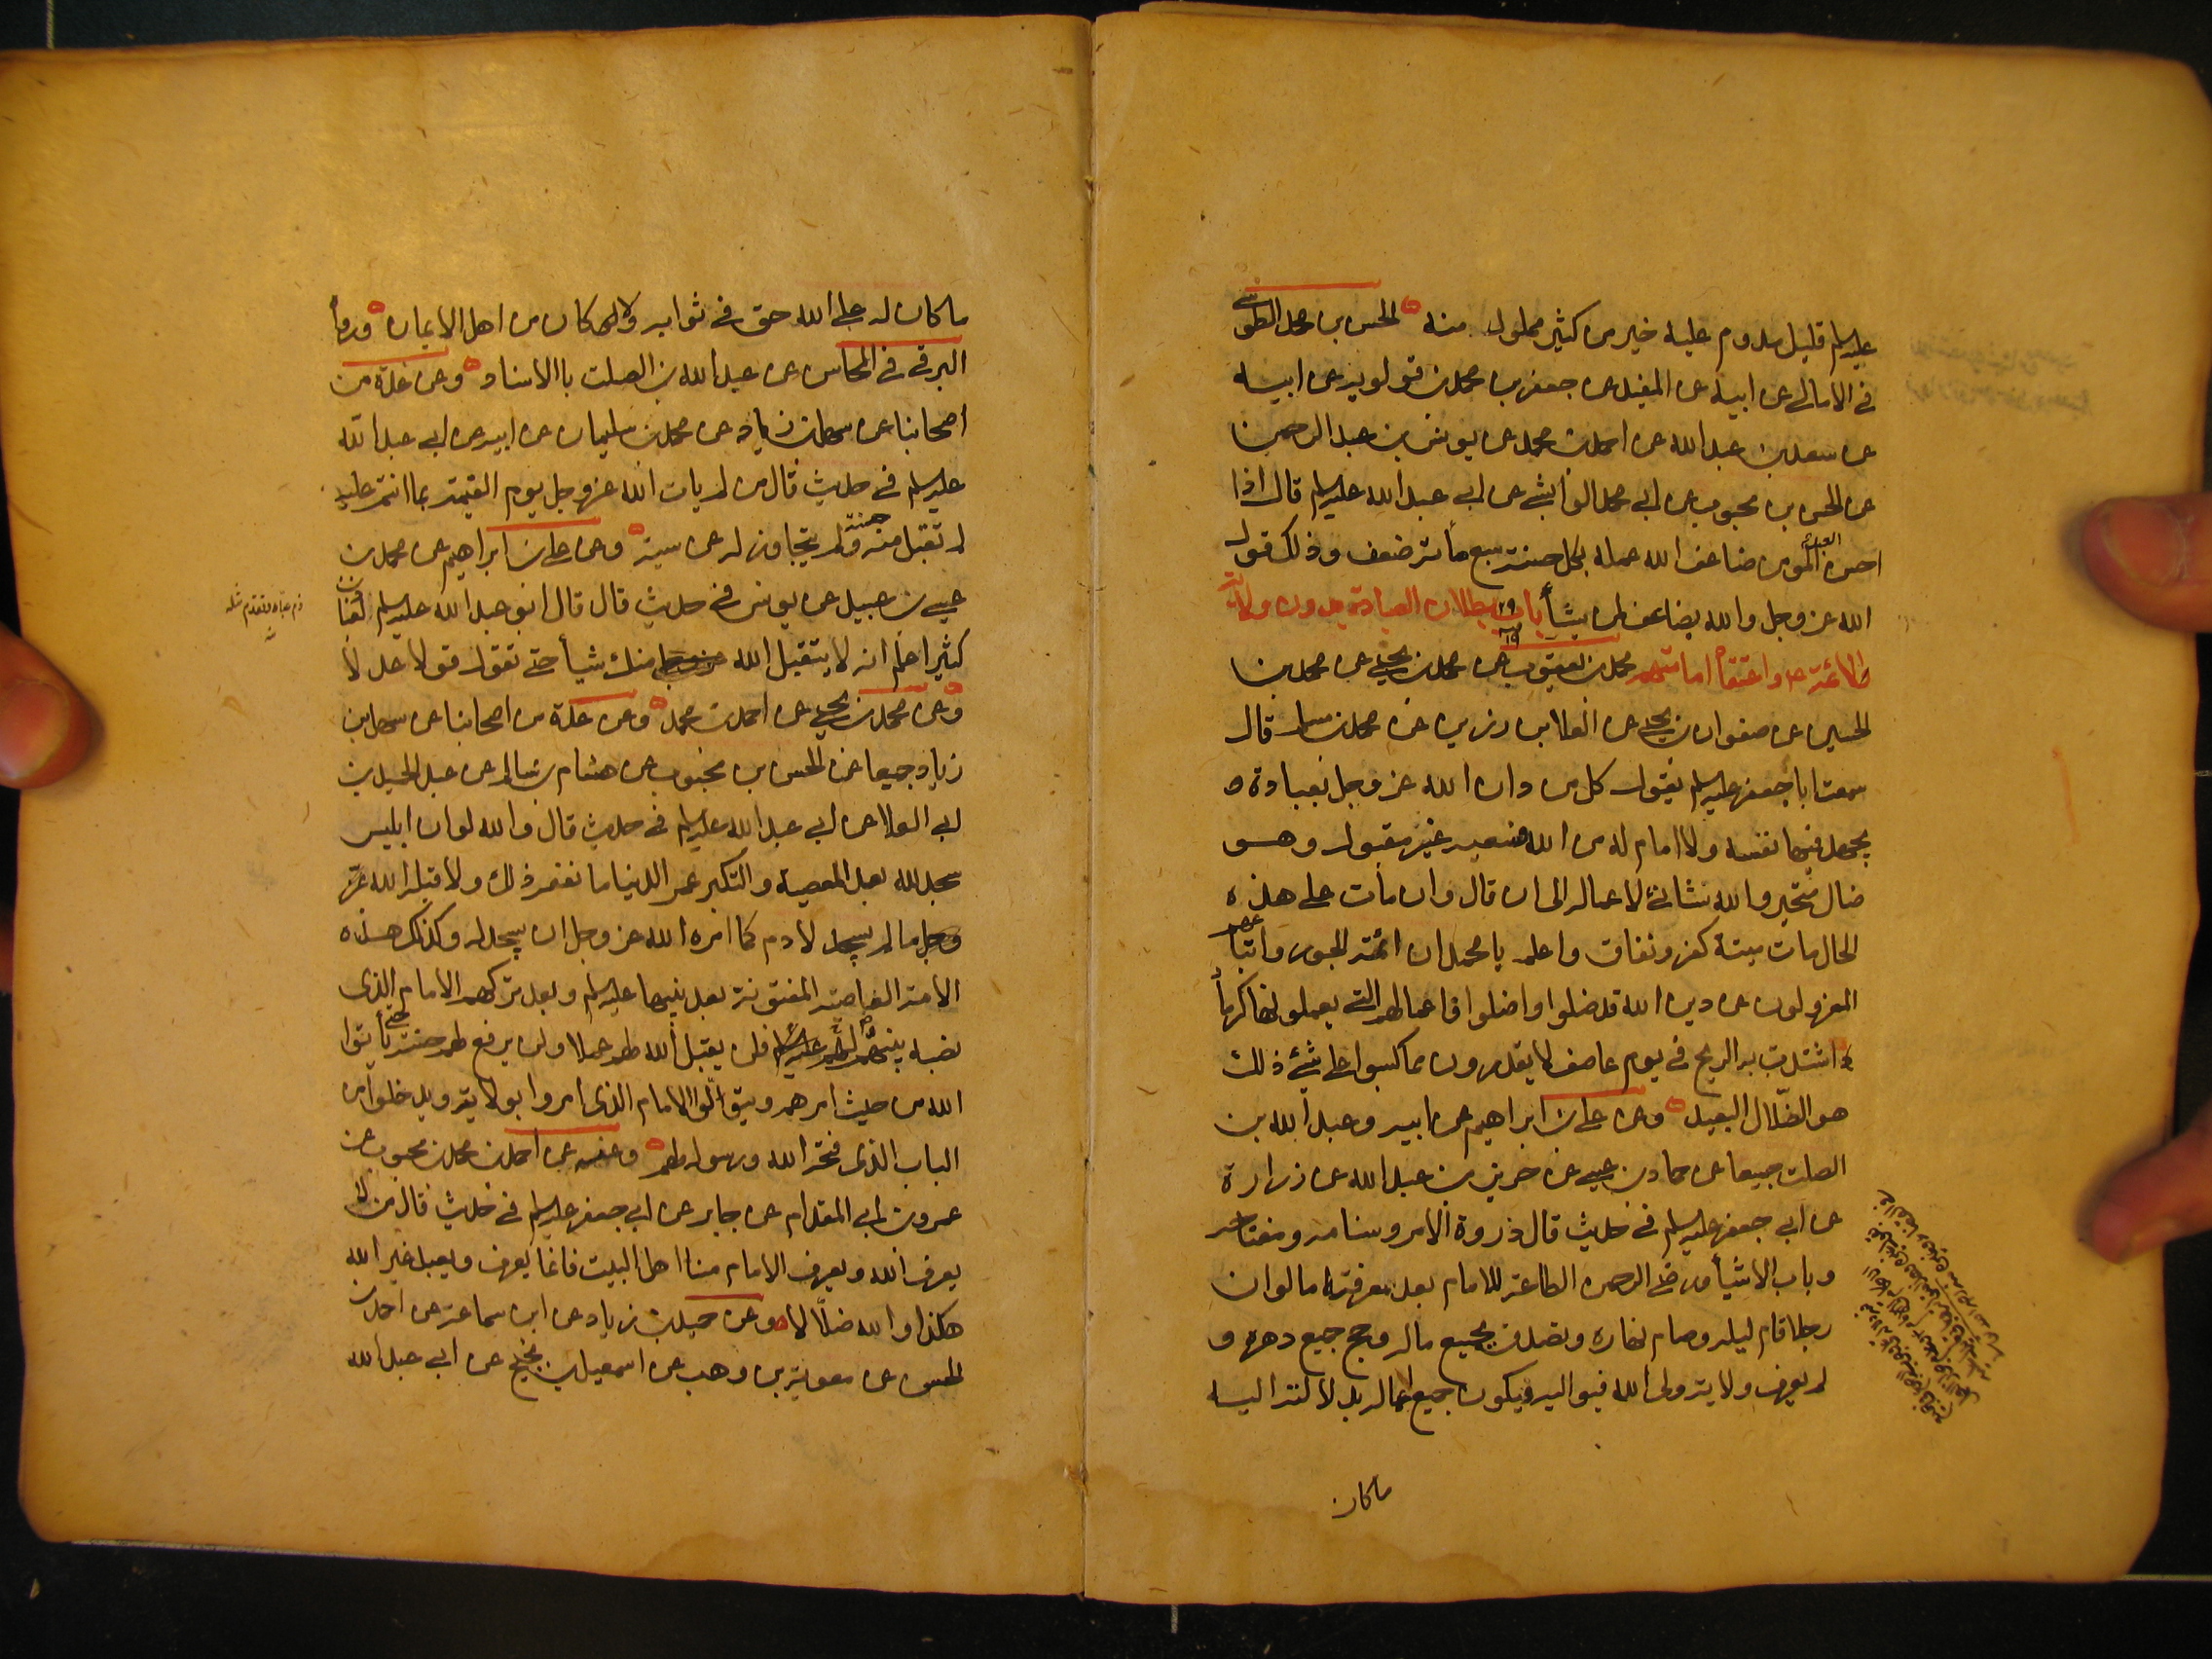 عليه السلم قليل مدوم عليه خير من كثير مملول منه الحسن بن محمد الطوسي
في الامالي عن ابيه عن المفيد عن جعفر بن محمد بن قولويه عن ابيه
عن سعد بن عبد الله عن احمد بن محمد عن يونس بن عبد الرحمن
عن الحسن بن محبوب عن ابي محمد الوابشي عن ابي عبد الله عليه السلم قال اذا
احسن العبد المؤمن ضاعف الله عمله بكل حسنة سبع مأئة ضعف وذلك قول
الله عز وجل والله يضاعف لمن يشأ باب ٢٩ بطلان العبادة بدون ولاية
الائمة ع واعتقاد امامتهم محمد بن يعقوب عن محمد بن يحيى عن محمد بن
الحسين عن صفوان بن يحيى عن العلا بن رزين عن محمد بن مسلم قال
سمعت ابا جعفر عليه السلم يقول كل من دان الله عز وجل بعبادة
يجهد فيها نفسه ولا امام له من الله فسعيه غير مقبول وهو
ضال متحير والله شانئ لاعماله الى ان قال وان مات على هذه
الحال مات ميتة كفر ونفاق واعلم يا محمد ان ائمة الجور واتباعهم
لمعزولون عن دين الله قد ضلوا واضلوا فاعمالهم التي يعملونها كرماد
اشتدت به الريح في يوم عاصف لا يقدرون مما كسبوا على شئ ذلك
هو الضلال البعيد وعن علي بن ابراهيم عن ابيه وعبد الله بن
الصلت جميعا عن حماد بن عيسى عن حريز بن عبد الله عن زرارة
عن ابي جعفر عليه السلم في حديث قال ذروة الامر وسنامه ومفتاحه
وباب الاشيأ ورضى الرحمن الطاعة للامام بعد معرفته اما لو ان
رجلا قام ليله وصام نهاره وتصدق بجميع ماله وحج جميع دهره و
لم يعرف ولاية ولى الله فيواليه ويكون جميع اعماله بدلالته اليه
ماكان
ما كان له على الله حق في ثوابه ولا كان من اهل الايمان ورواه
البرقي في المحاسن عن عبد الله بن الصلت باالاسناد وعن عدة من
اصحابنا عن سهل بن زياد عن محمد بن سليمان عن ابيه عن ابي عبد الله
عليه السلم في حديث قال من لم يات الله عز وجل يوم القيمة بما انتم عليه
لم تقبل منه حسنة ولم يتجاوز له عن سيئة وعن علي بن ابراهيم عن محمد بن
عيسى بن عبيد عن يونس في حديث قال قال ابو عبد الله عليه السلم لعباد بن
كثير اعلم انه لا يتقبل الله منك شيأ حتى تقول قولا عدلا
وعن محمد بن يحيى عن احمد بن محمد وعن عدة من اصحابنا عن سهل بن
زياد جميعا عن الحسن بن محبوب عن هشام بن سالم عن عبد الحميد بن
ابي العلا عن ابي عبد الله عليه السلم في حديث قال والله لو ان ابليس
سجد لله بعد المعصية والتكبر عمر الدنيا ما نفعه ذلك ولا قبله الله عز
وجل ما لم يسجد لادم كما امره الله عز وجل ان يسجد له وكذلك هذه
الامة العاصية المفتونة بعد نبيها عليه السلم وبعد تركهم الامام الذي
نصبه نبيهم لهم فلن يقبل الله لهم عملا ولن يرفع لهم حسنة حتى يأتوا
الله من حيث امرهم ويتولوا الامام الذي امروا بولايته ويدخلوا من
الباب الذي فتحه الله ورسوله لهم وعنه عن احمد بن محمد بن محبوب عن
عمرو بن ابي المقدام عن جابر عن ابي جعفر عليه السلم في حديث قال من لا
يعرف الله ويعرف الامام منا اهل البيت فانما يعرف ويعبد غير الله
هكذا والله ضلالا وعن حميد بن زياد عن ابن سماعة عن احمد بن
الحسن عن معوية بن وهب عن اسمعيل بن نجيح عن ابي عبد الله